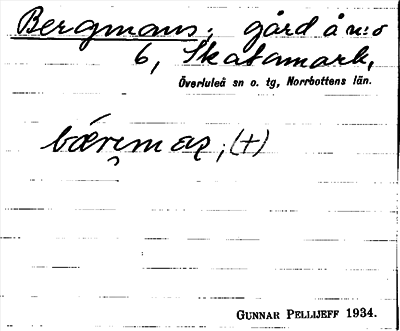 Bergmans; gård å n:o
6, Skatamark,
Överluleå sn o. tg, Norrbottens län.
(+)
GUNNAR PELLIJEFF 1934.